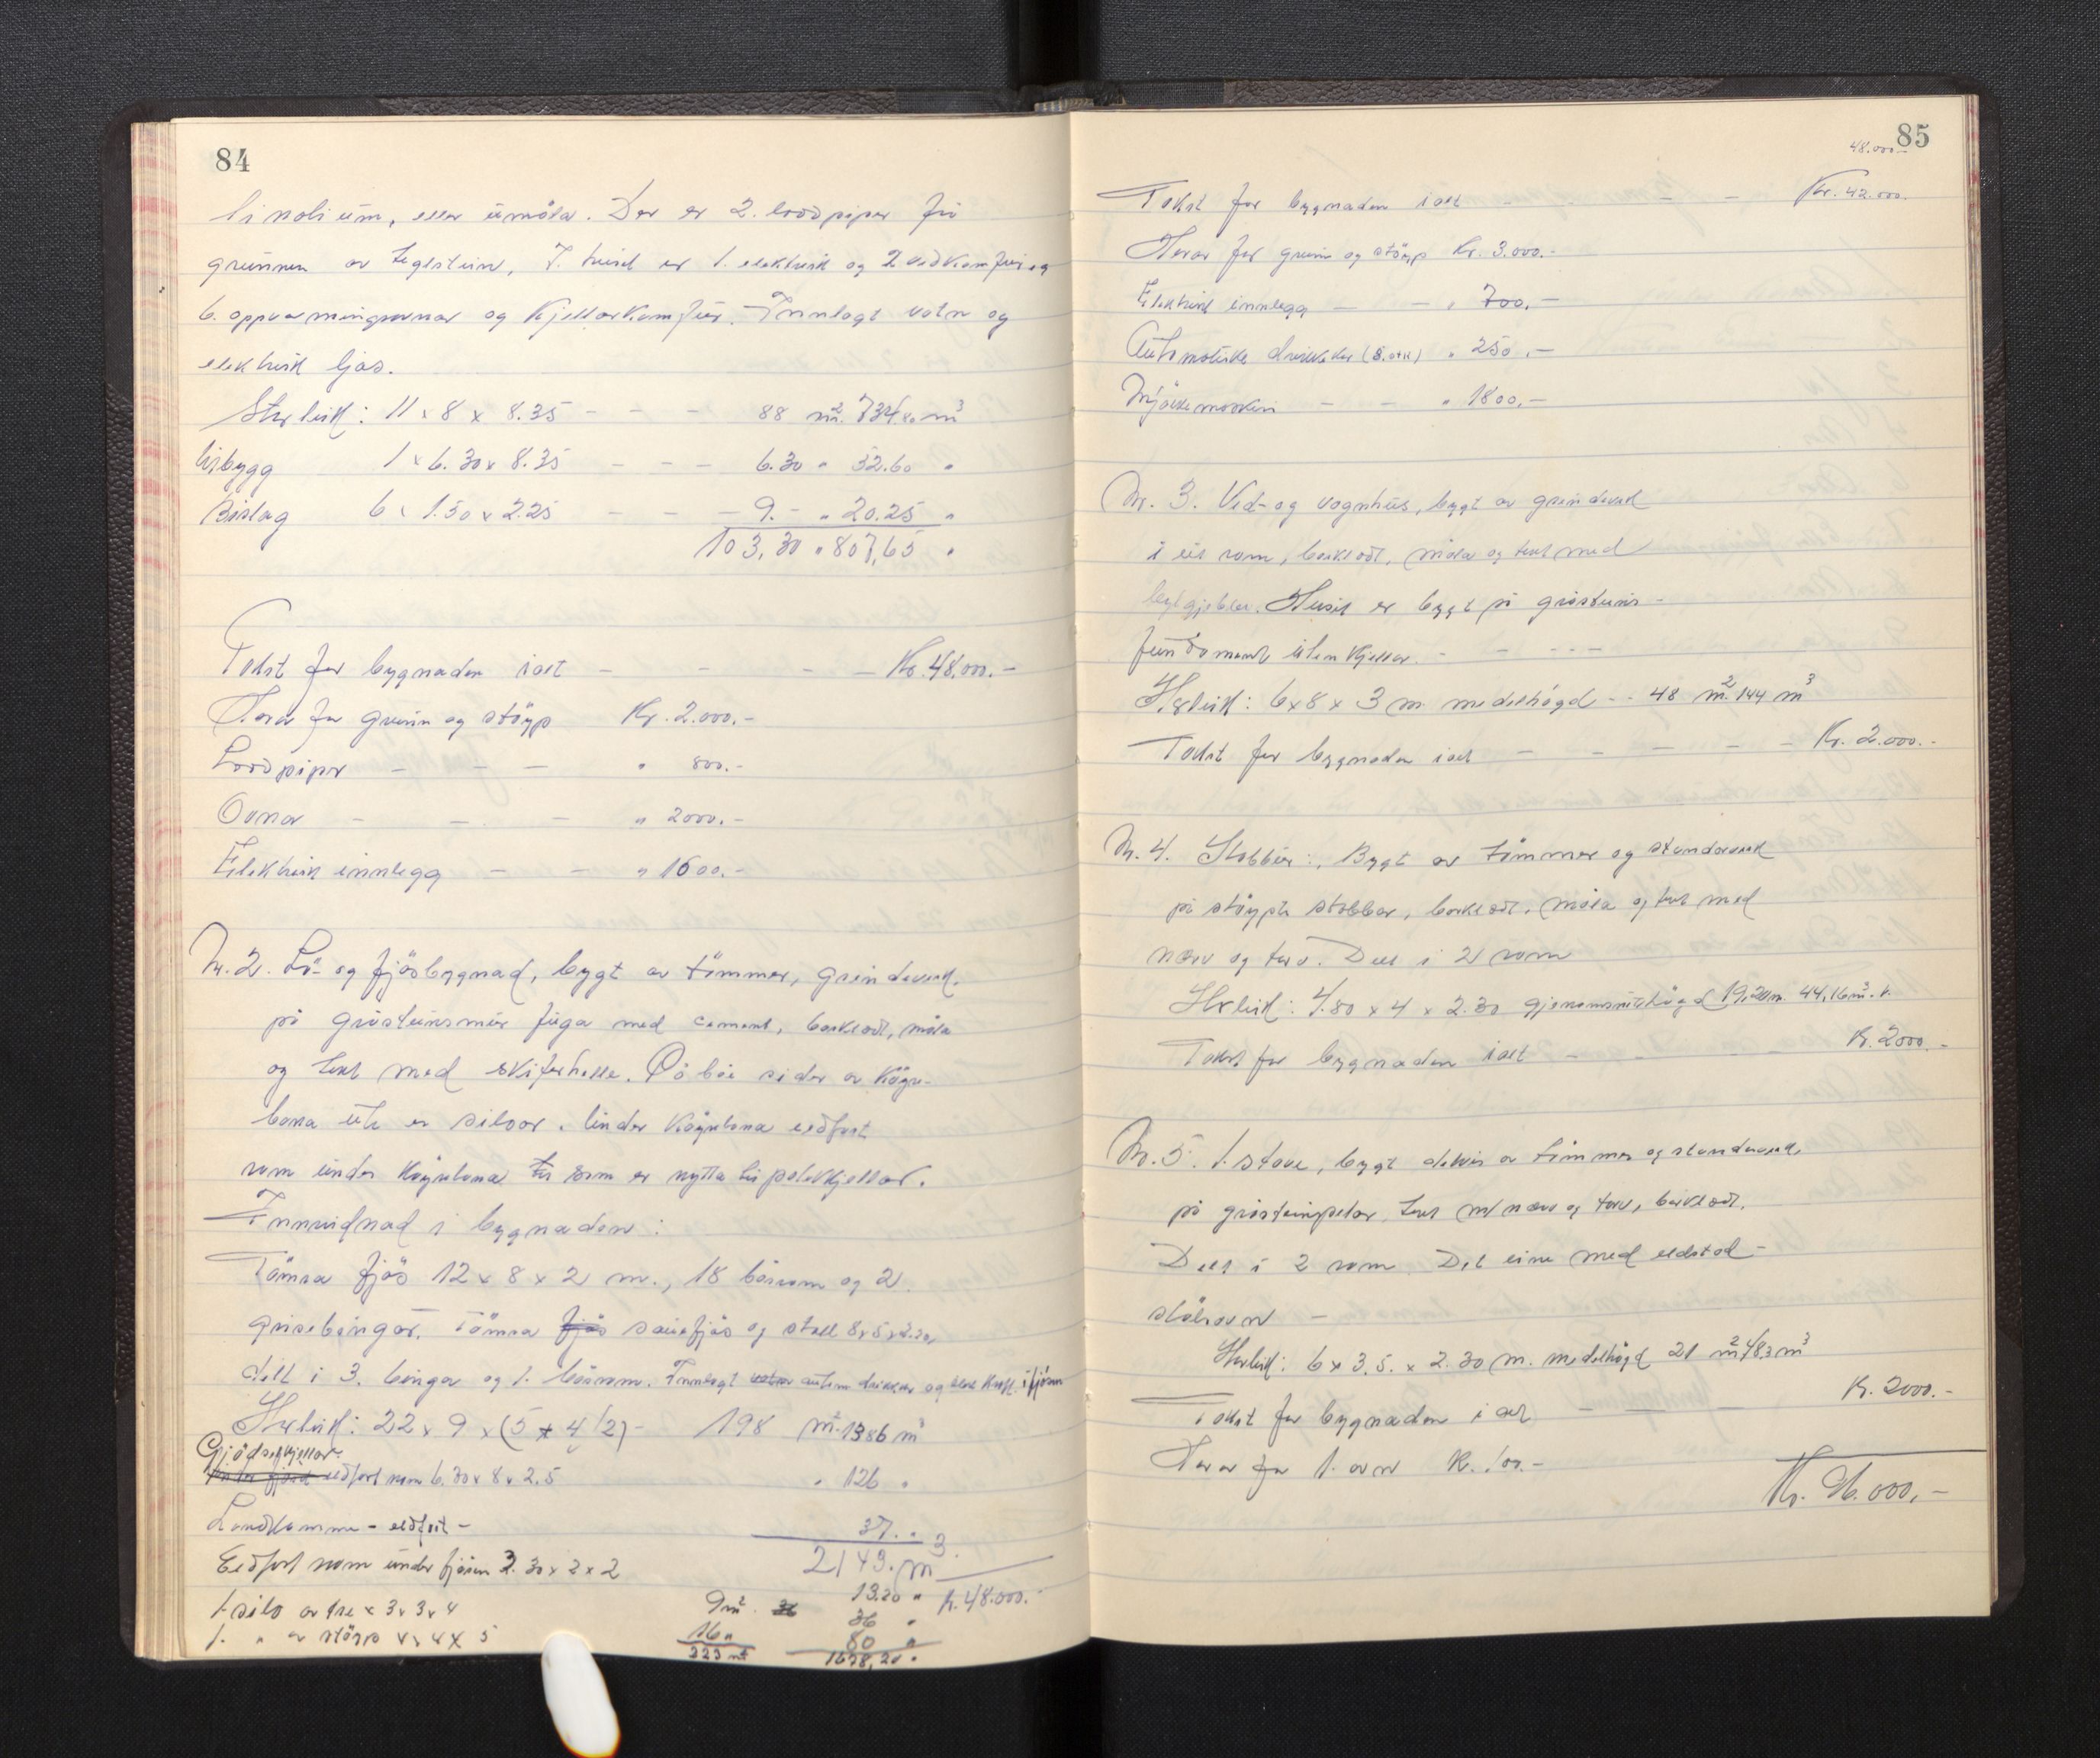 84
linolium, eller umåla. Der er 2. loddpipor frå
grunnen av teglstein, I. huset er 1. elektrisk og 2 vedkomfur og
6. oppvarmingsovnar og Kjellarkomfur. Innlagt vatn og
elektrisk ljos.
Storleik: 11 x 8 x 8.35 - - - 88 m². 734.80 m³
Utbygg 1 x 6.30 x 8.35 - - - 6.30 " 52.60 "
Bislag 6 x 1.50 x 2.25 - - - 9.- " 20.25 "
103,30 " 807,65 "
Takst for bygnaden ialt - - - - Kr. 48.000.-
Herav for grunn og støyp Kr. 2.000.-
Loddpipor - - - " 800.-
Ovnar - - - " 2000.-
Elektrisk innlegg - - " 1600.-
Nr. 2. Lö- og fjösbygnad, bygt av tömmer, grindverk.
på gråsteinsmur fuga med cement, bordklædt, måla
og tekt med skiferhelle. På båe sider av Köyre-
brua ute er siloar. Under Köyrebrua eldfast
rom under Köyrebrua som er nytta til potetkjellar.
Innreidnad i bygnaden:
Tömra fjös 12 x 8 x 2 m., 18 båsrom og 2.
grisebingar. Tömra fjös sauefjös og stall 8 x 5 x 2.20,
delt i 3. bingar og 1. båsrom. Innlagt vatn autom drikkar og elek kraft. i fjösen
Storleik: 22 x 9 x (5 + 4/2) - 198 m² 1386 m³
Gjödselkjellar
eldfast rom 6.30 x 8 x 2.5 " 126 "
Landkamma - eldfast - 37. "
2149. m³.
Eldfast rom under fjösen 3.30 x 2 x 2 13.20 " Kr. 48.000.-
1. silo av tre x 3 x 3 x 4 9 m². 36 36 "
1. " av støyp 4 x 4 x 5 16 " 80 "
223 m² 1678,20 "
85
48.000.-
Takst for bygnaden ialt - - - Kr. 42.000.
Herav for grunn og stöyp Kr. 3.000.-
Elektrisk innlegg - - " 700.-
Automatiske drikkekar (8. stk) " 250.-
Mjölkemaskin - - " 1800.-
Nr. 3. Ved- og vognhus, bygt av grindverk
i eit rom, bordklædt, måla og tekt med
bylgjeblekk. Huset er bygt på gråsteins-
fundament uten Kjellar. - - - - -
Storleik: 6 x 8 x 3 m. medelhögd - - 48 m². 144 m³
Takst for bygnaden ialt - - - - - Kr. 2.000.-
Nr. 4. Stabbur: Bygt av tömmer og standarverk
på stöypte stabbar, bordklædt, måla og tekt med
næver og torv. Delt i 2 rom
Storleik: 4.80 x 4 x 2.30 gjenomsnitshögd 19.20 m. 44,16 m³.
Takst for bygnaden ialt - - - Kr. 2000.-
Nr. 5. 1. stove, bygt delvis av tömmer og standarverk.
på gråsteinspelar, tekt m/ næver og torv, bordklædt.
Delt i 2 rom. Det eine med eldstad-
stålovn -
Storleik: 6 x 3.5. x 2.30 m. medelhögd 21 m² 48,3 m³
Takst for bygnaden i alt - - - Kr. 2000.-
Herav for 1. ovn Kr. 100.-
Kr. 96.000,-